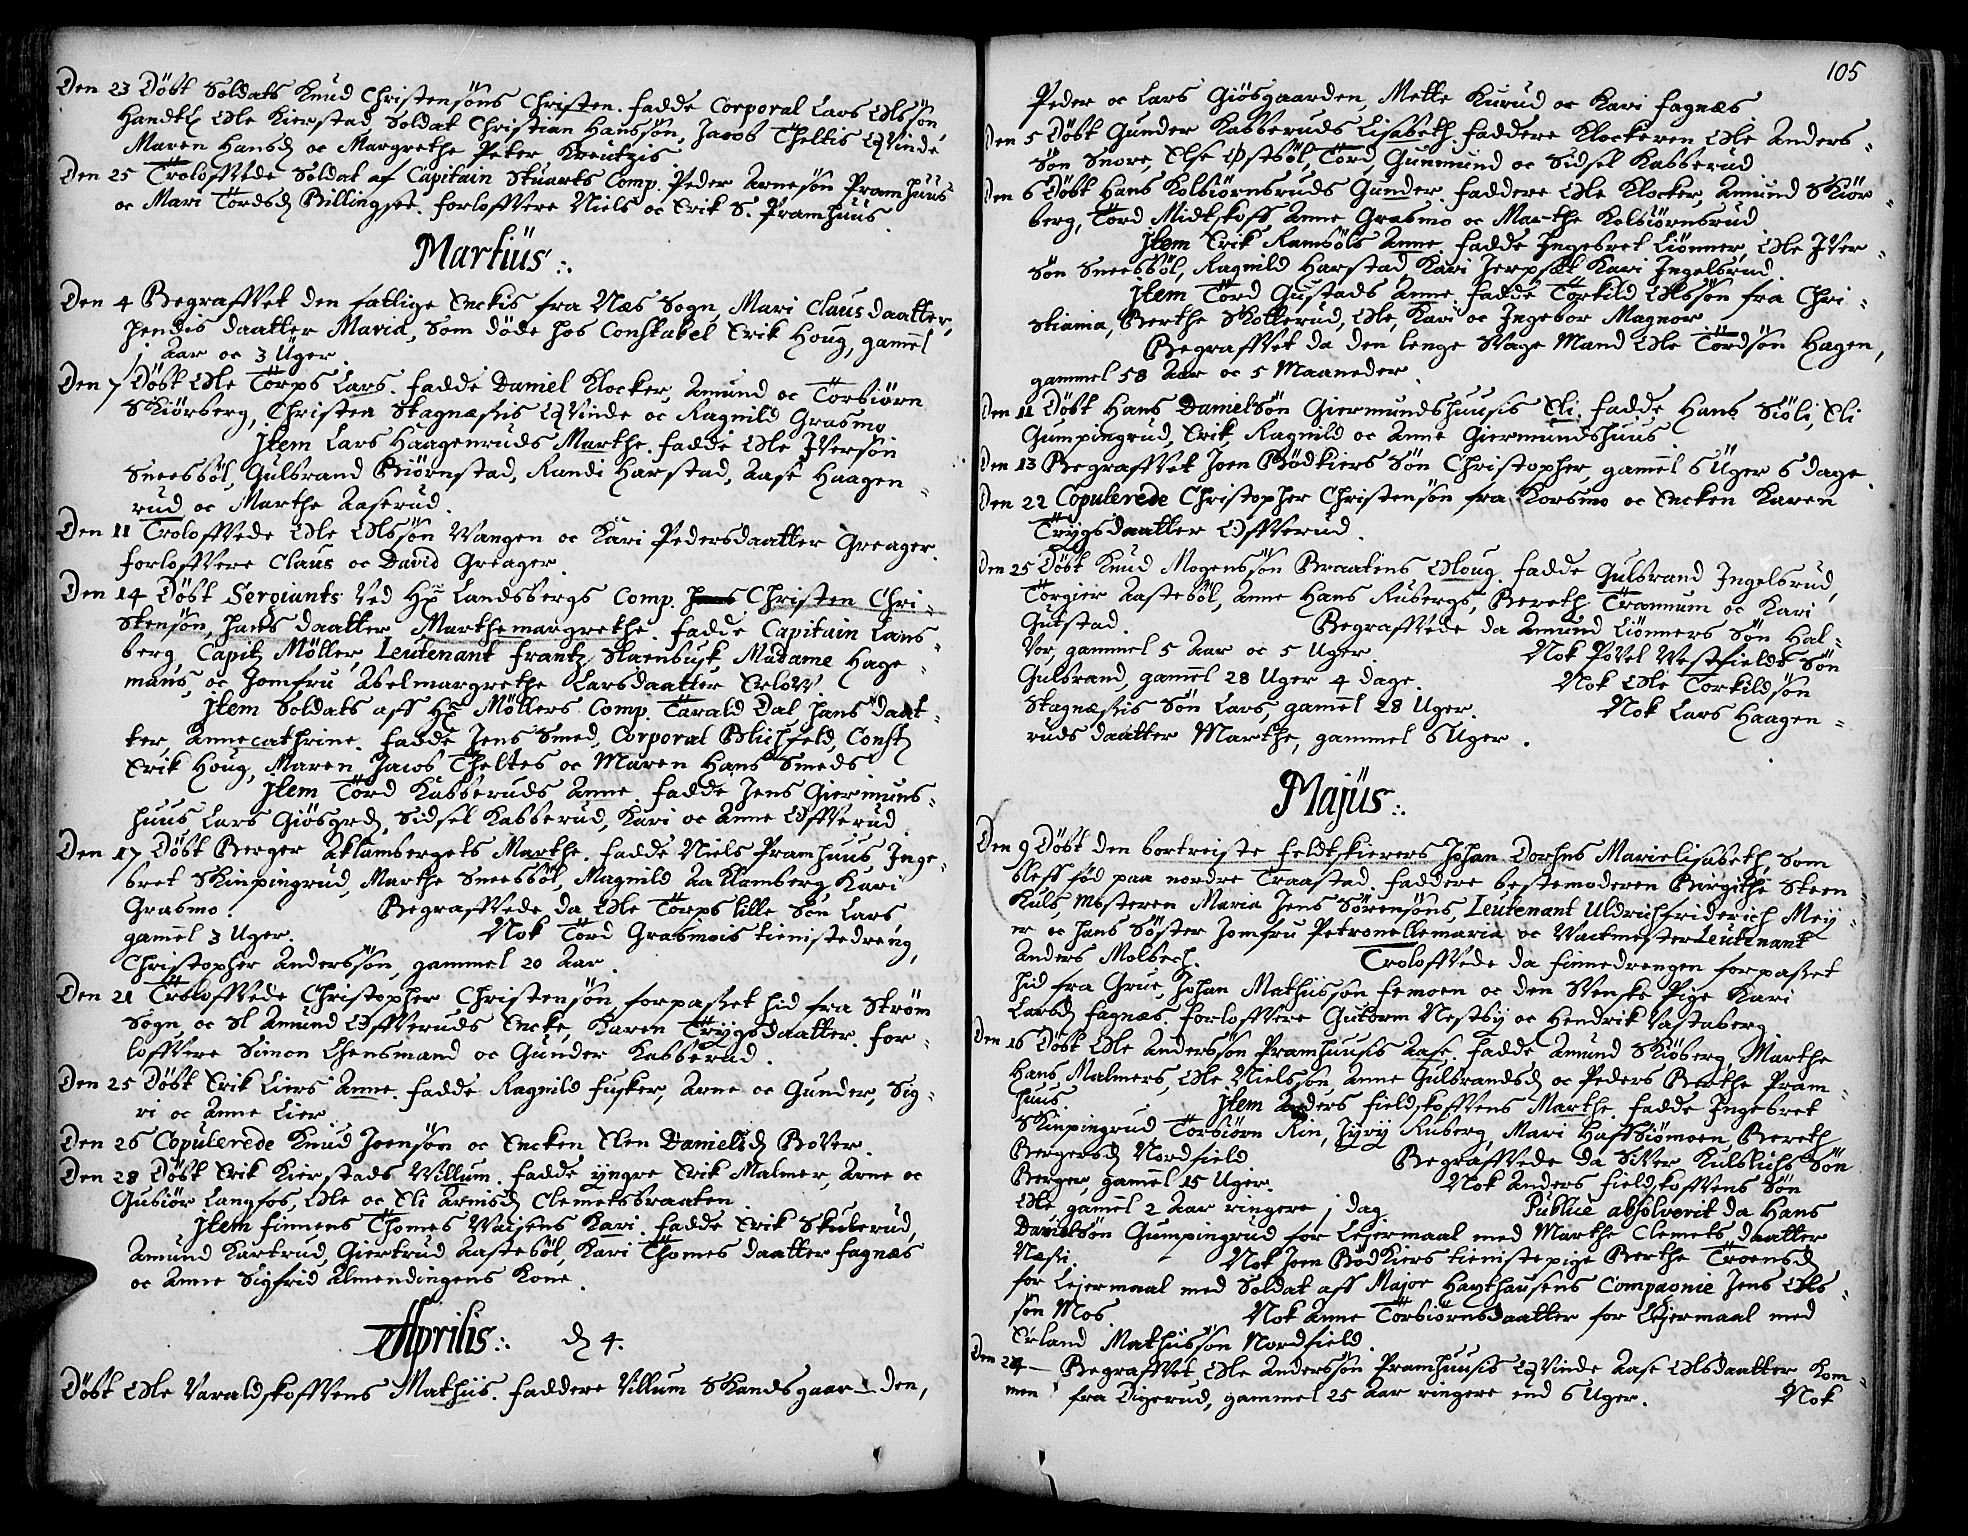 Den 23 Döbt Soldats Knud Christensöns Christen. fadde Corporal Lars Olssön
Handtz Ole Kierstad Soldat Christian Hanssön, Jacob Theltis Qvinde
Maren Hansd. oc Margrethe Peter Kreutzis
Den 25 Troloffvede Soldat af Capitain Stuarts Comp. Peder Arnesön Pramhuus
oc Mari Tordsd. Billingsöe. forloffvere Niels oc Erik S. Pramhuus
Martius :.
Den 4 Begraffvet den fattige Enckis fra Næs Sogn, Mari Clausdaatter,
hendis daatter Maria, som döde hos Constabel Erik Houg, gamel
1 Aar oc 3 Uger.
Den 7 Döbt Ole Torps Lars. fadde Daniel Klocker, Amund oc Torbiörn
Skiörberg, Christen Skagnæssis Qvinde oc Ragnild Grasmo
Item Lars Haagenruds Marthe. fadde Ole Iversön
Sneesböl, Gulbrand Biörnstad, Randi Harstad, Aase Haagen-
rud oc Marthe Aaserud.
Den 11 Troloffvede Ole Olssön Vangen oc Kari Pedersdaatter Greager.
forloffvere Claus oc David Greager.
Den 14 Döbt Sergiants ved Hr. Landsbergs Comp. Hans Christen Chri-
stensön, hans daatter Marthemargrethe. fadde Capitain Lans
berg Capit. Möller, Leutenant frantz Staenbusk, Madame Hage-
mans, oc Jomfru Abelmargrethe Larsdaatter Erlow.
Item Soldats aff Hr. Möllers Comp. Tarald Dal hans daat-
ter, Annecathrine. fadde Jens Smed, Corporal Blichfeld, Const.
Erik Houg, Maren Jacob Theltes oc Maren Hans Smeds
Item Tord Kabberuds Anne. fadde Jens Giermuns-
huus Lars Giösgrd., Sidsel Kabberud, Kari oc Anne Offverud
Den 17 Döbt Berger Aklambergets Marthe. fadde Niels Pramhuus Inge-
bret Skinpingrud, Marthe Sneesböl, Magnild Aaklamberg Kari
Grasmo. Begraffvede da Ole Torps lille Sön Lars
gamel 3 Uger. Nok Tord Grasmois tienistedreng,
Christopher Anderssön, gammel 20 Aar.
Den 21 Troloffvede Christopher Christensön, forpasset hid fra Ström
Sogn, oc Sl Amund Offveruds Encke, Karen Trygsdaatter. for-
loffvere Simon Lhensmand oc Gunder Kabberud.
Den 25 Döbt Erik Liers Anne. fadde Ragnild fusker, Arne oc Gunder, Sig-
ri oc Anne Lier.
Den 26 Copulerede Knud Joensön oc Encken Elen Danielsd. Bover.
Den 28 Döbt Erik Kierstads Villum. fadde yngre Erik Malmer, Arne oc
Gubiör Langfos, Ole oc Eli Arnisd. Clemetsbraaten
Item finnens Thomes Vaisens Kari. fadde Erik Skuberud,
Amund Kartrud, Giertrud Aasteböl, Kari Thomes daatter fagnæs
oc Anne Sigfrid Almendingens Kone.
Aprilis :. d. 4.
Döbt Ole Varaldskoffvens Mathiis. faddere Villum Skandsgaar-den,
105
Peder oc Lars Giösgaarden, Mette Kurud oc Kari fagnæs
Den 5 Döbt Gunder Kabberuds Lisabeth. faddere Klockeren Ole Anders-
sön Snore, Else Östböl, Tord, Gunmund oc Sidsel Kabberud
Den 6 Döbt Hans Kolbiörnsruds Gunder. faddere Ole Klocker, Amund Skiör-
berg, Tord Midtskoff Anne Grasmo oc Marthe Kolbiörnsrud
Item Erik Ramböls Anne. fadde Ingebret Liönner, Ole Iver-
sön Sneesböl, Ragnild Harstad, Kari Jerpset Kari Ingelsrud.
Item Tord Gustads Anne. fadde Torkild Olssön fra Chri-
stiania, Berthe Skotterud, Ole, Kari oc Ingebor Magnor
Begraffvet da den lenge svage Mand Ole Tordsön Hagen,
gammel 58 Aar oc 5 Maaneder.
Den 11 Döbt Hans Danielsön Giermundshuusis Eli. fadde Hans Siöli, Eli
Gumpingrud, Erik, Ragnild oc Anne Giermundshuus
Den 13 Begraffvet Joen Bödkiers Sön Christopher, gamel 6 Uger 6 dage.
Den 22 Copulerede Christopher Christensön fra Korsmo oc Encken Karen
Trygsdaatter Offverud.
Den 25 Döbt Knud Mogenssön Braatens Oloug. fadde Gulbrand Ingelsrud,
Torgier Aasteböl, Anne Hans Rubergs, Bereth Trannum oc Kari
Gutstad. Begraffvede da Amund Liönners Sön Hal-
vor, gammel 5 Aar oc 5 Uger. Nok Povel Vestfields Sön
Gulbrand, gamel 28 Uger 4 dage. Nok Ole Torkildsön
Skagnæssis Sön Lars, gamel 28 Uger. Nok Lars Haagen-
ruds daatter Marthe, gammel 6 Uger.
Majus :.
Den 9 Döbt den bortreiste feldtskierers Johan Dorhns Marielisabeth, som
bleff föd paa nordre Traastad. faddere bestemoderen Birgithe Steen
Kuls, Mosteren Maria Jens Sörensöns, Leutenant Uldrichfriderich Mey-
er oc hans Söster Jomfru Petronellemaria oc VactmesterLeutenant
Anders Molbech. Troloffvede da finnedrengen forpasset
hid fra Grue, Johan Mathissön femoen oc den Svenske Pige Kari
Larsd. fagnæs. forloffvere Gutorm Nestby oc Hendrik Vastaberg.
Den 16 Döbt Ole Anderssön Pramhuusis Aase. fadde Amund Skiöberg, Marthe
Hans Malmers, Ole Nielssön, Anne Gulbrandsd. oc Peders Berthe Pram-
huus. Item Anders fieldskoffvens Marthe. fadde Ingebret
Skinpingrud Torbiörn Rin, Jyry Ruberg, Mari Haffsiömoen, Bereth
Bergersd. Nordfield Begraffvede da Siver Kulblichs Sön
Berger, gamel 15 Uger. Nok Anders fieldskoffvens Sön
Ole gamel 2 Aar ringere 1 dag Publice absolverit da Hans
Danielsön Gumpingrud for Lejermaal med Marthe Clemetsdaatter
Næssi. Nok Joen Bödkiers tienistepige Berthe Troensd.
for Lejermaal med Soldat aff Major Haxthausens Compagnie Jens Ols-
sön Mos. Nok Anne Torbiörnsdaatter for Lejermaal med
Erland Mathissön Nordfield.
Den 24 - Begraffvet Ole Anderssön Pramhuusis Qvinde Aase Olsdaatter kom-
men fra Digerud, gammel 25 Aar ringere end 6 Uger. Nok